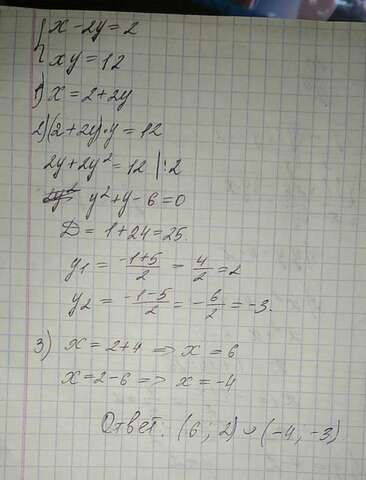 { x - 2y = 2
xy = 12
1) x = 2 + 2y
2) (2 + 2y) · y = 12
2y + 2y² = 12 | :2
y² + y - 6 = 0
D = 1 + 24 = 25.
y₁ = (-1+5)/2 = 4/2 = 2
y₂ = (-1-5)/2 = -6/2 = -3.
3) x = 2+4 => x = 6
x = 2-6 => x = -4
Ответ: (6; 2) и (-4, -3)